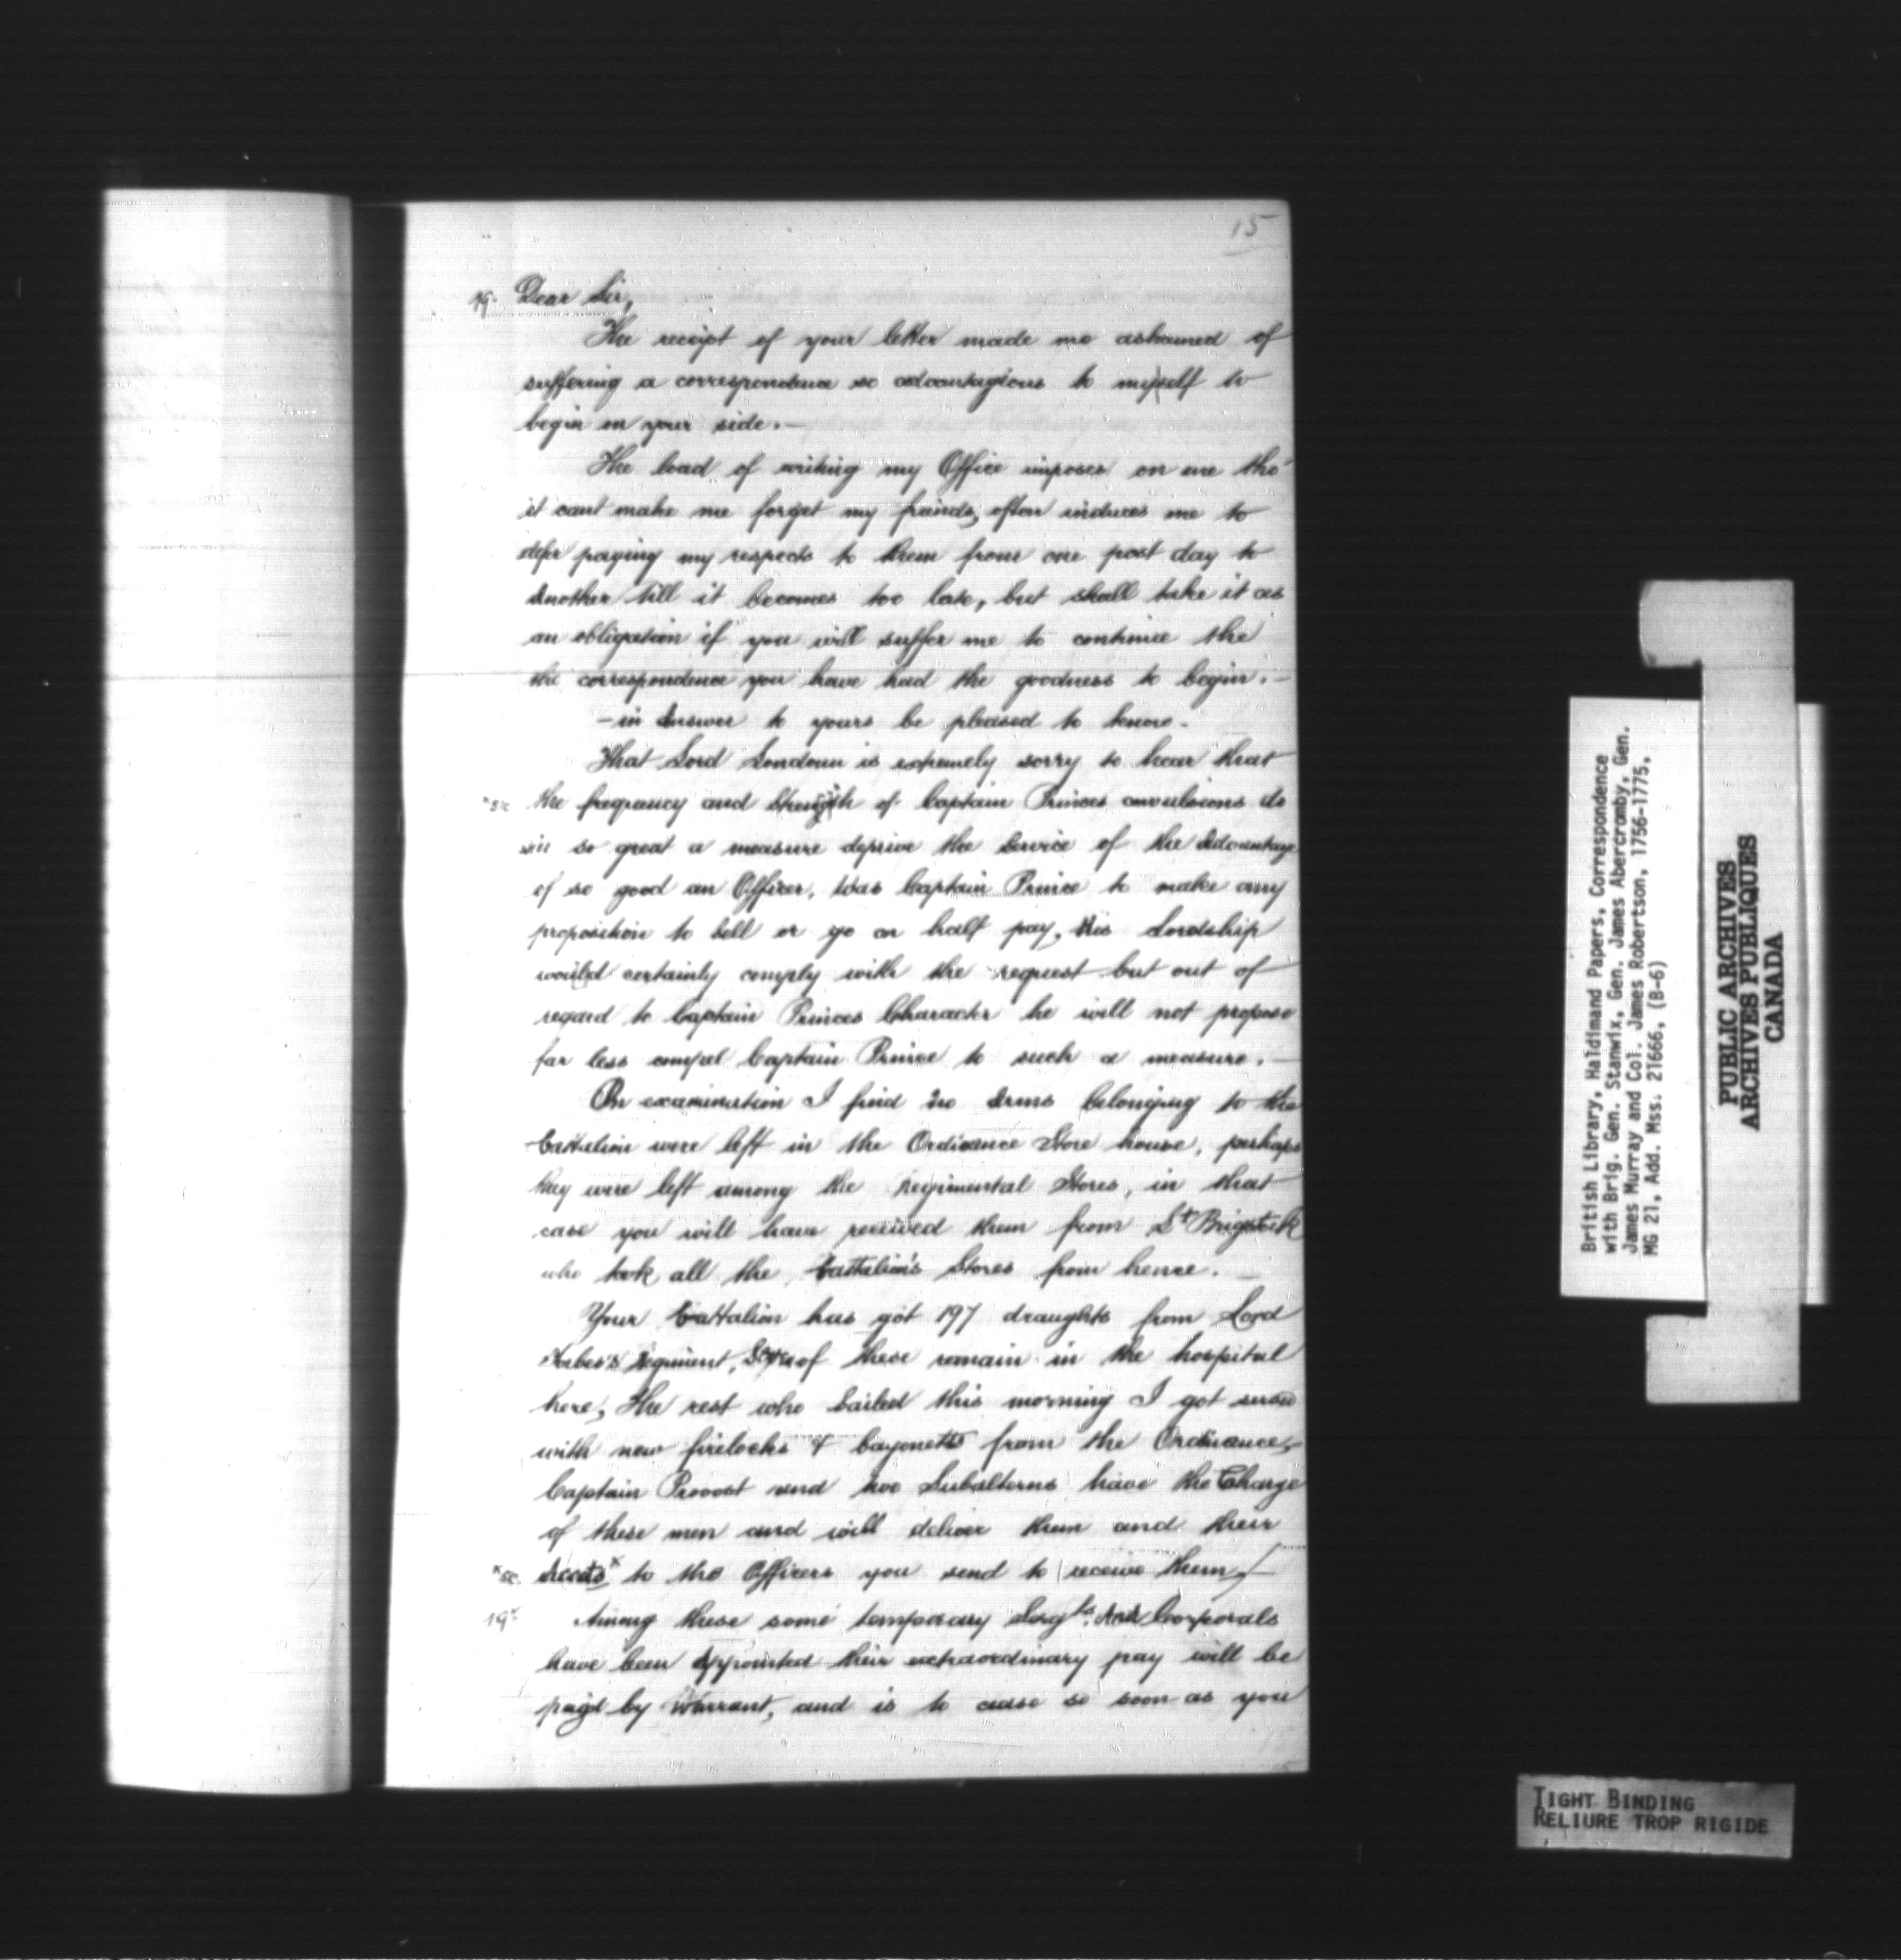 15
19. Dear Sir,
The receipt of your letter made me ashamed of
suffering a correspondence so advantagious to myself to
begin on your side.—
The load of writing my Office imposes on me tho'
it cant make me forget my freinds, often induces me to
defer paying my respects to them from one post day to
Another till it becomes too late, but shall take it as
an obligation if you will suffer me to continue the
the correspondence you have had the goodness to begin.—
—in Answer to yours be pleased to know-
That Lord Loudoun is extremely sorry to hear that
*sic the frequency and Strength of Captain Princes convulsions do
in so great a measure deprive the Service of the Advantage
of so good an Officer, Was Captain Prince to make any
proposition to Sell or go on half pay, His Lordship
would certainly comply with the request but out of
regard to Captain Princes Character he will not propose
far less compel Captain Prince to such a measure.—
On examination I find no Arms belonging to the
battalion were left in the Ordinance Store house, perhaps
they were left among the Regimental Stores, in that
case you will have received them from Lt Brigstock
who took all the battalion's Stores from hence.—
Your battalion has got 197 draughts from Lord
Forbes's Regiment, of these remain in the hospital
here, The rest who Sailed this morning I got
with new firelocks & bayonetts from the Ordinance,-
Captain Provost and two Subalterns have the Charge
of these men and will deliver them and their
*sc. Accots* to the Officers you send to receive them/—
19. Among these some temporary Sergts. And Corporals
have been Appointed their extraordinary pay will be
payd by Warrant, and is to cease so soon as you
British Library, Haldimand Papers, Correspondence
with Brig. Gen. Stanwix, Gen. James Abercromby, Gen.
James Murray and Col. James Robertson, 1756-1775,
MG 21, Add. Mss. 21666, (B-6)
PUBLIC ARCHIVES
ARCHIVES PUBLIQUES
CANADA
TIGHT BINDING
RELIURE TROP RIGIDE